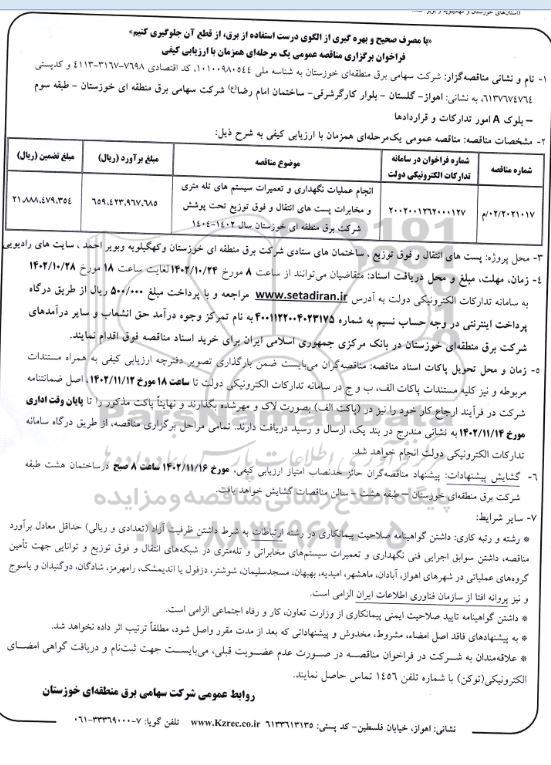 «با مصرف صحیح و بهره گیری از الگوی درست استفاده از برق، از قطع آن جلوگیری کنیم»
فراخوان برگزاری مناقصه عمومی یک مرحله‌ای همزمان با ارزیابی کیفی
۱- نام و نشانی مناقصه‌گزار: شرکت سهامی برق منطقه‌ای خوزستان به شناسه ملی ۱۰۱۰۰۹۸۰۵۴۴، کد اقتصادی ۷۶۹۸-۳۱۶۷-۴۱۱۳ و کدپستی
۶۱۳۷۶۷۴۷۶۴، به نشانی: اهواز- گلستان - بلوار کارگرشرقی- ساختمان امام رضا(ع) شرکت سهامی برق منطقه ای خوزستان - طبقه سوم
– بلوک A امور تدارکات و قراردادها
۲- مشخصات مناقصه: مناقصه عمومی یک‌مرحله‌ای همزمان با ارزیابی کیفی به شرح ذیل:
شماره مناقصه
شماره فراخوان در سامانه تدارکات الکترونیکی دولت
موضوع مناقصه
مبلغ برآورد (ریال)
مبلغ تضمین (ریال)
۰۲/۲۰۲۱۰۱۷/م
۲۰۰۲۰۰۱۳۶۲۰۰۰۱۲۷
انجام عملیات نگهداری و تعمیرات سیستم های تله متری
و مخابرات پست های انتقال و فوق توزیع تحت پوشش
شرکت برق منطقه ای خوزستان سال ۱۴۰۲-۱۴۰۴
۶۵۹.۴۲۳.۹۶۷.۶۸۵
۲۱.۸۸۸.۴۷۹.۳۵۴
۳- محل پروژه: پست های انتقال و فوق توزیع ، ساختمان های ستادی شرکت برق منطقه ای خوزستان وکهگیلویه وبویر احمد ، سایت های رادیویی
۴- زمان، مهلت، مبلغ و محل دریافت اسناد: متقاضیان می‌توانند از ساعت ۸ مورخ ۱۴۰۲/۱۰/۲۴ لغایت ساعت ۱۸ مورخ ۱۴۰۲/۱۰/۲۸
به سامانه تدارکات الکترونیکی دولت به آدرس www.setadiran.ir مراجعه و با پرداخت مبلغ ۵۰۰/۰۰۰ ریال از طریق درگاه
پرداخت اینترنتی در وجه حساب نسیم به شماره ۴۰۰۱۱۲۲۰۰۴۰۲۳۱۷۵ به نام تمرکز وجوه درآمد حق انشعاب و سایر درآمدهای
شرکت برق منطقه‌ای خوزستان در بانک مرکزی جمهوری اسلامی ایران برای خرید اسناد مناقصه فوق اقدام نمایند.
۵- زمان و محل تحویل پاکات اسناد مناقصه: مناقصه‌گران می‌بایست ضمن بارگذاری تصویر دفترچه ارزیابی کیفی به همراه مستندات
مربوطه و نیز کلیه مستندات پاکات الف، ب و ج در سامانه تدارکات الکترونیکی دولت تا ساعت ۱۸ مورخ ۱۴۰۲/۱۱/۱۲، اصل ضمانتنامه
شرکت در فرآیند ارجاع کار خود را نیز در (پاکت الف) بصورت لاک و مهرشده بگذارند و نهایتاً پاکت مذکور را تا پایان وقت اداری
مورخ ۱۴۰۲/۱۱/۱۴ به نشانی مندرج در بند یک، ارسال و رسید دریافت دارند. تمامی مراحل برگزاری مناقصه، از طریق درگاه سامانه
تدارکات الکترونیکی دولت انجام خواهد شد.
۶- گشایش پیشنهادات: پیشنهاد مناقصه‌گران حائز حدنصاب امتیاز ارزیابی کیفی، مورخ ۱۴۰۲/۱۱/۱۶ ساعت ۸ صبح درساختمان هشت طبقه
شرکت برق منطقه‌ای خوزستان – طبقه هشت - سالن مناقصات گشایش خواهد یافت.
۷- سایر شرایط:
* رشته و رتبه کاری: داشتن گواهینامه صلاحیت پیمانکاری در رشته ارتباطات به شرط داشتن ظرفیت آزاد (تعدادی و ریالی) حداقل معادل برآورد
مناقصه، داشتن سوابق اجرایی فنی نگهداری و تعمیرات سیستم‌های مخابراتی و تله‌متری در شبکه‌های انتقال و فوق توزیع و توانایی جهت تأمین
گروه‌های عملیاتی در شهرهای اهواز، آبادان، ماهشهر، امیدیه، بهبهان، مسجدسلیمان، شوشتر، دزفول یا اندیمشک، رامهرمز، شادگان، دوگنبدان و یاسوج
و نیز پروانه افتا از سازمان فناوری اطلاعات ایران الزامی است.
* داشتن گواهینامه تایید صلاحیت ایمنی پیمانکاری از وزارت تعاون، کار و رفاه اجتماعی الزامی است.
* به پیشنهادهای فاقد اصل امضاء، مشروط، مخدوش و پیشنهاداتی که بعد از مدت مقرر واصل شود، مطلقاً ترتیب اثر داده نخواهد شد.
* علاقه‌مندان به شرکت در فراخوان مناقصه در صورت عدم عضویت قبلی، می‌بایست جهت ثبت‌نام و دریافت گواهی امضای
الکترونیکی(توکن) با شماره تلفن ۱۴۵۶ تماس حاصل نمایند.
روابط عمومی شرکت سهامی برق منطقه‌ای خوزستان
نشانی: اهواز، خیابان فلسطین- کد پستی: ۶۱۳۳۶۱۳۱۳۵ www.Kzrec.co.ir تلفن گویا: ۷-۳۳۳۶۹۰۰۰-۰۶۱